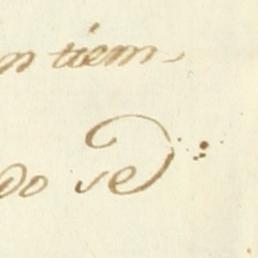 n tiem-
do se